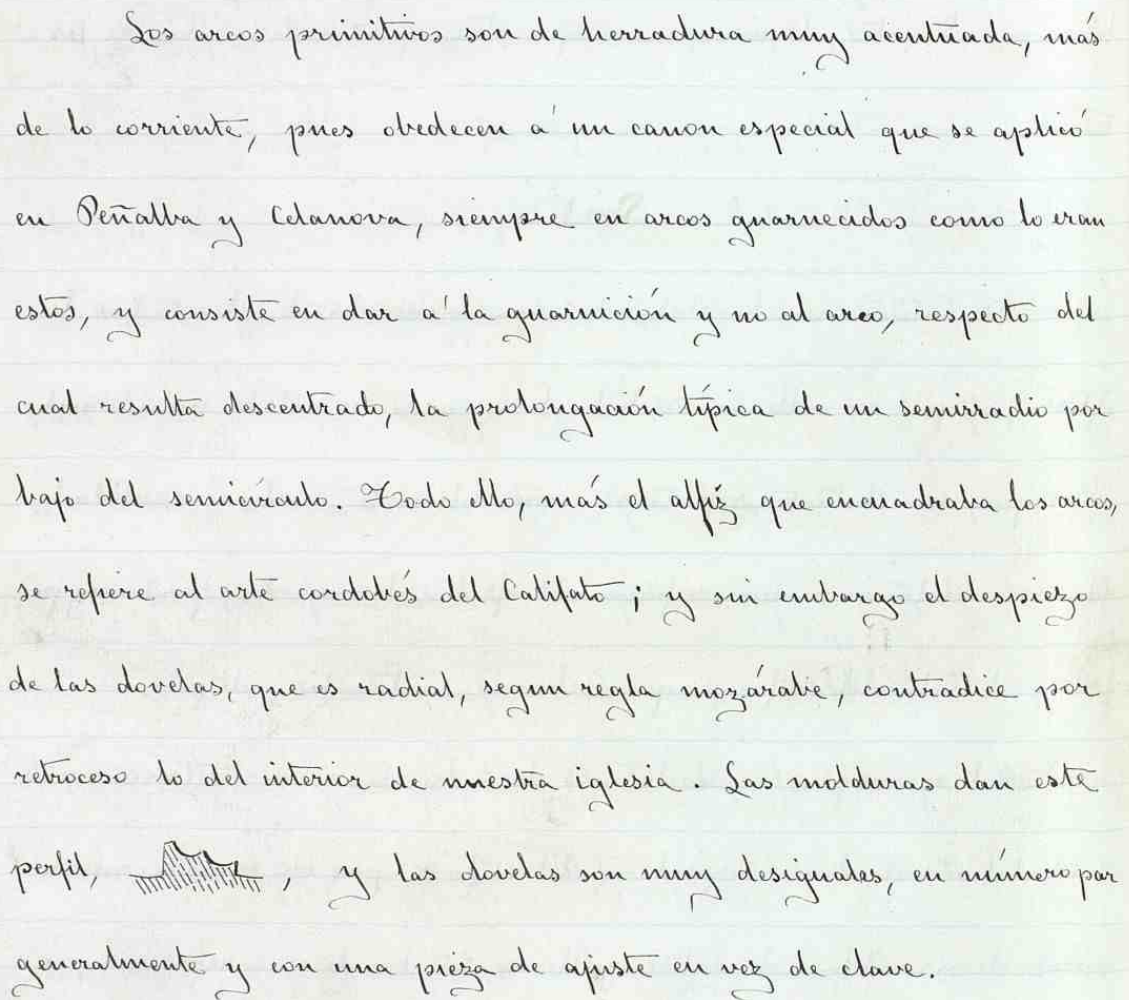 Los arcos primitivos son de herradura muy acentuada, más
de lo corriente, pues obedecen á un canon especial que se aplicó
en Peñalba y Celanova, siempre en arcos guarnecidos como lo eran
estos, y consiste en dar á la guarnición y no al arco, respecto del
cual resulta descentrado, la prolongación típica de un semirradio por
bajo del semicírculo. Todo ello, más el alfiz que encuadraba los arcos,
se refiere al arte cordobés del Califato; y sin embargo el despiezo
de las dovelas, que es radial, segun regla mozárabe, contradice por
retroceso lo del interior de nuestra iglesia. Las molduras dan este
perfil, , y las dovelas son muy desiguales, en número par
generalmente y con una pieza de ajuste en vez de clave.